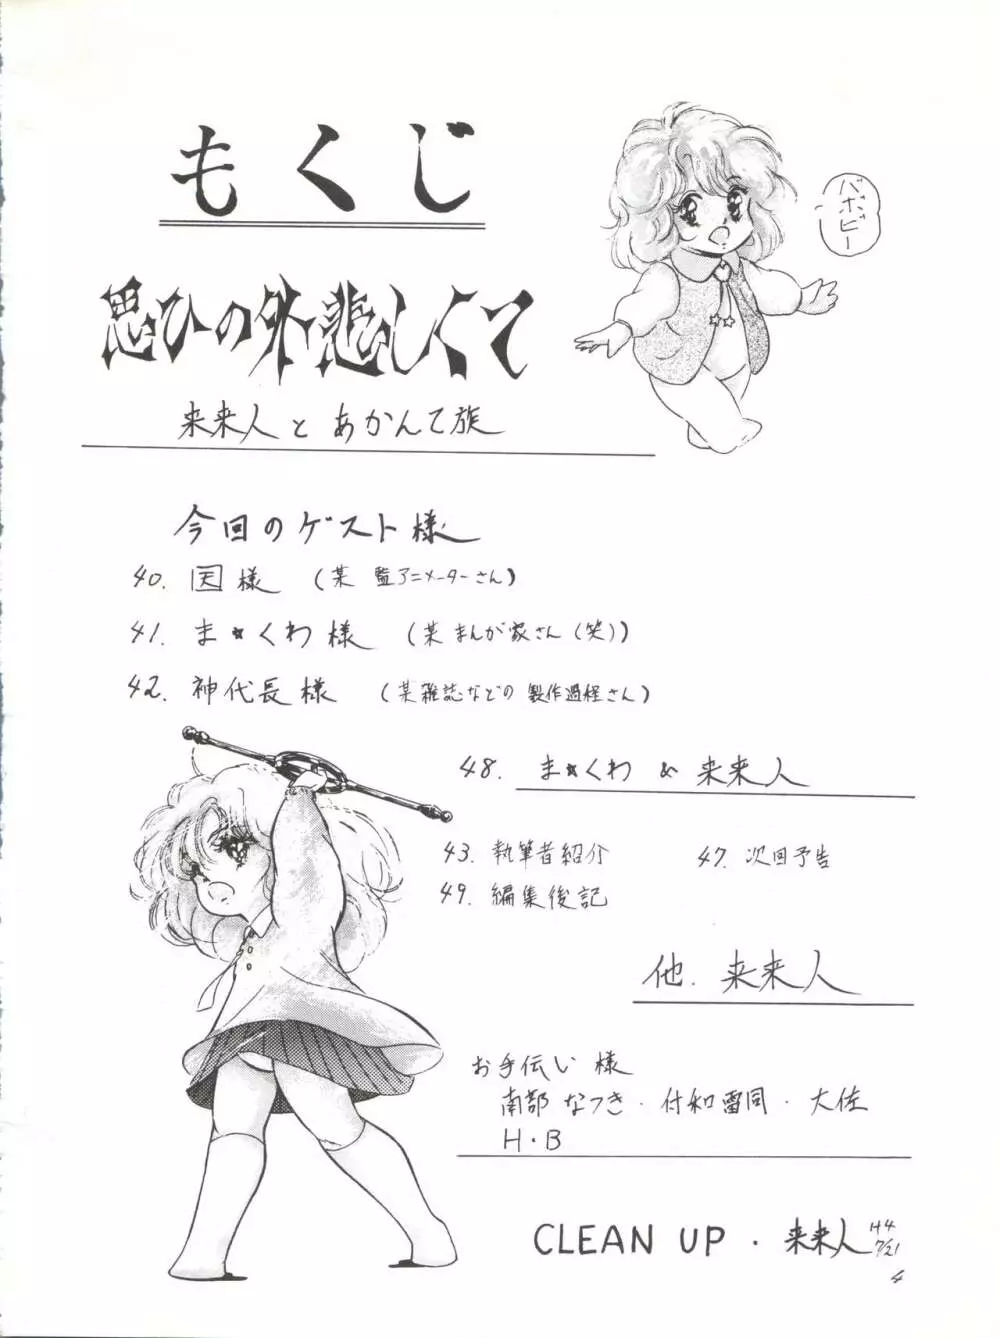 もくじ
バポピー
思ひの外悲しくて
来来人とあかんて族
今回のゲスト様
40. 因様 (某 監アニメーターさん)
41. ま★くわ様 (某 まんが家さん(笑))
42. 神代長様 (某雑誌などの 製作過程さん)
48. ま★くわ & 来来人
43. 執筆者紹介 47. 次回予告
49. 編集後記
他. 来来人
お手伝い様
南部なつき・付和雷同・大佐
H・B
CLEAN UP・来来人 H4 7/21
4